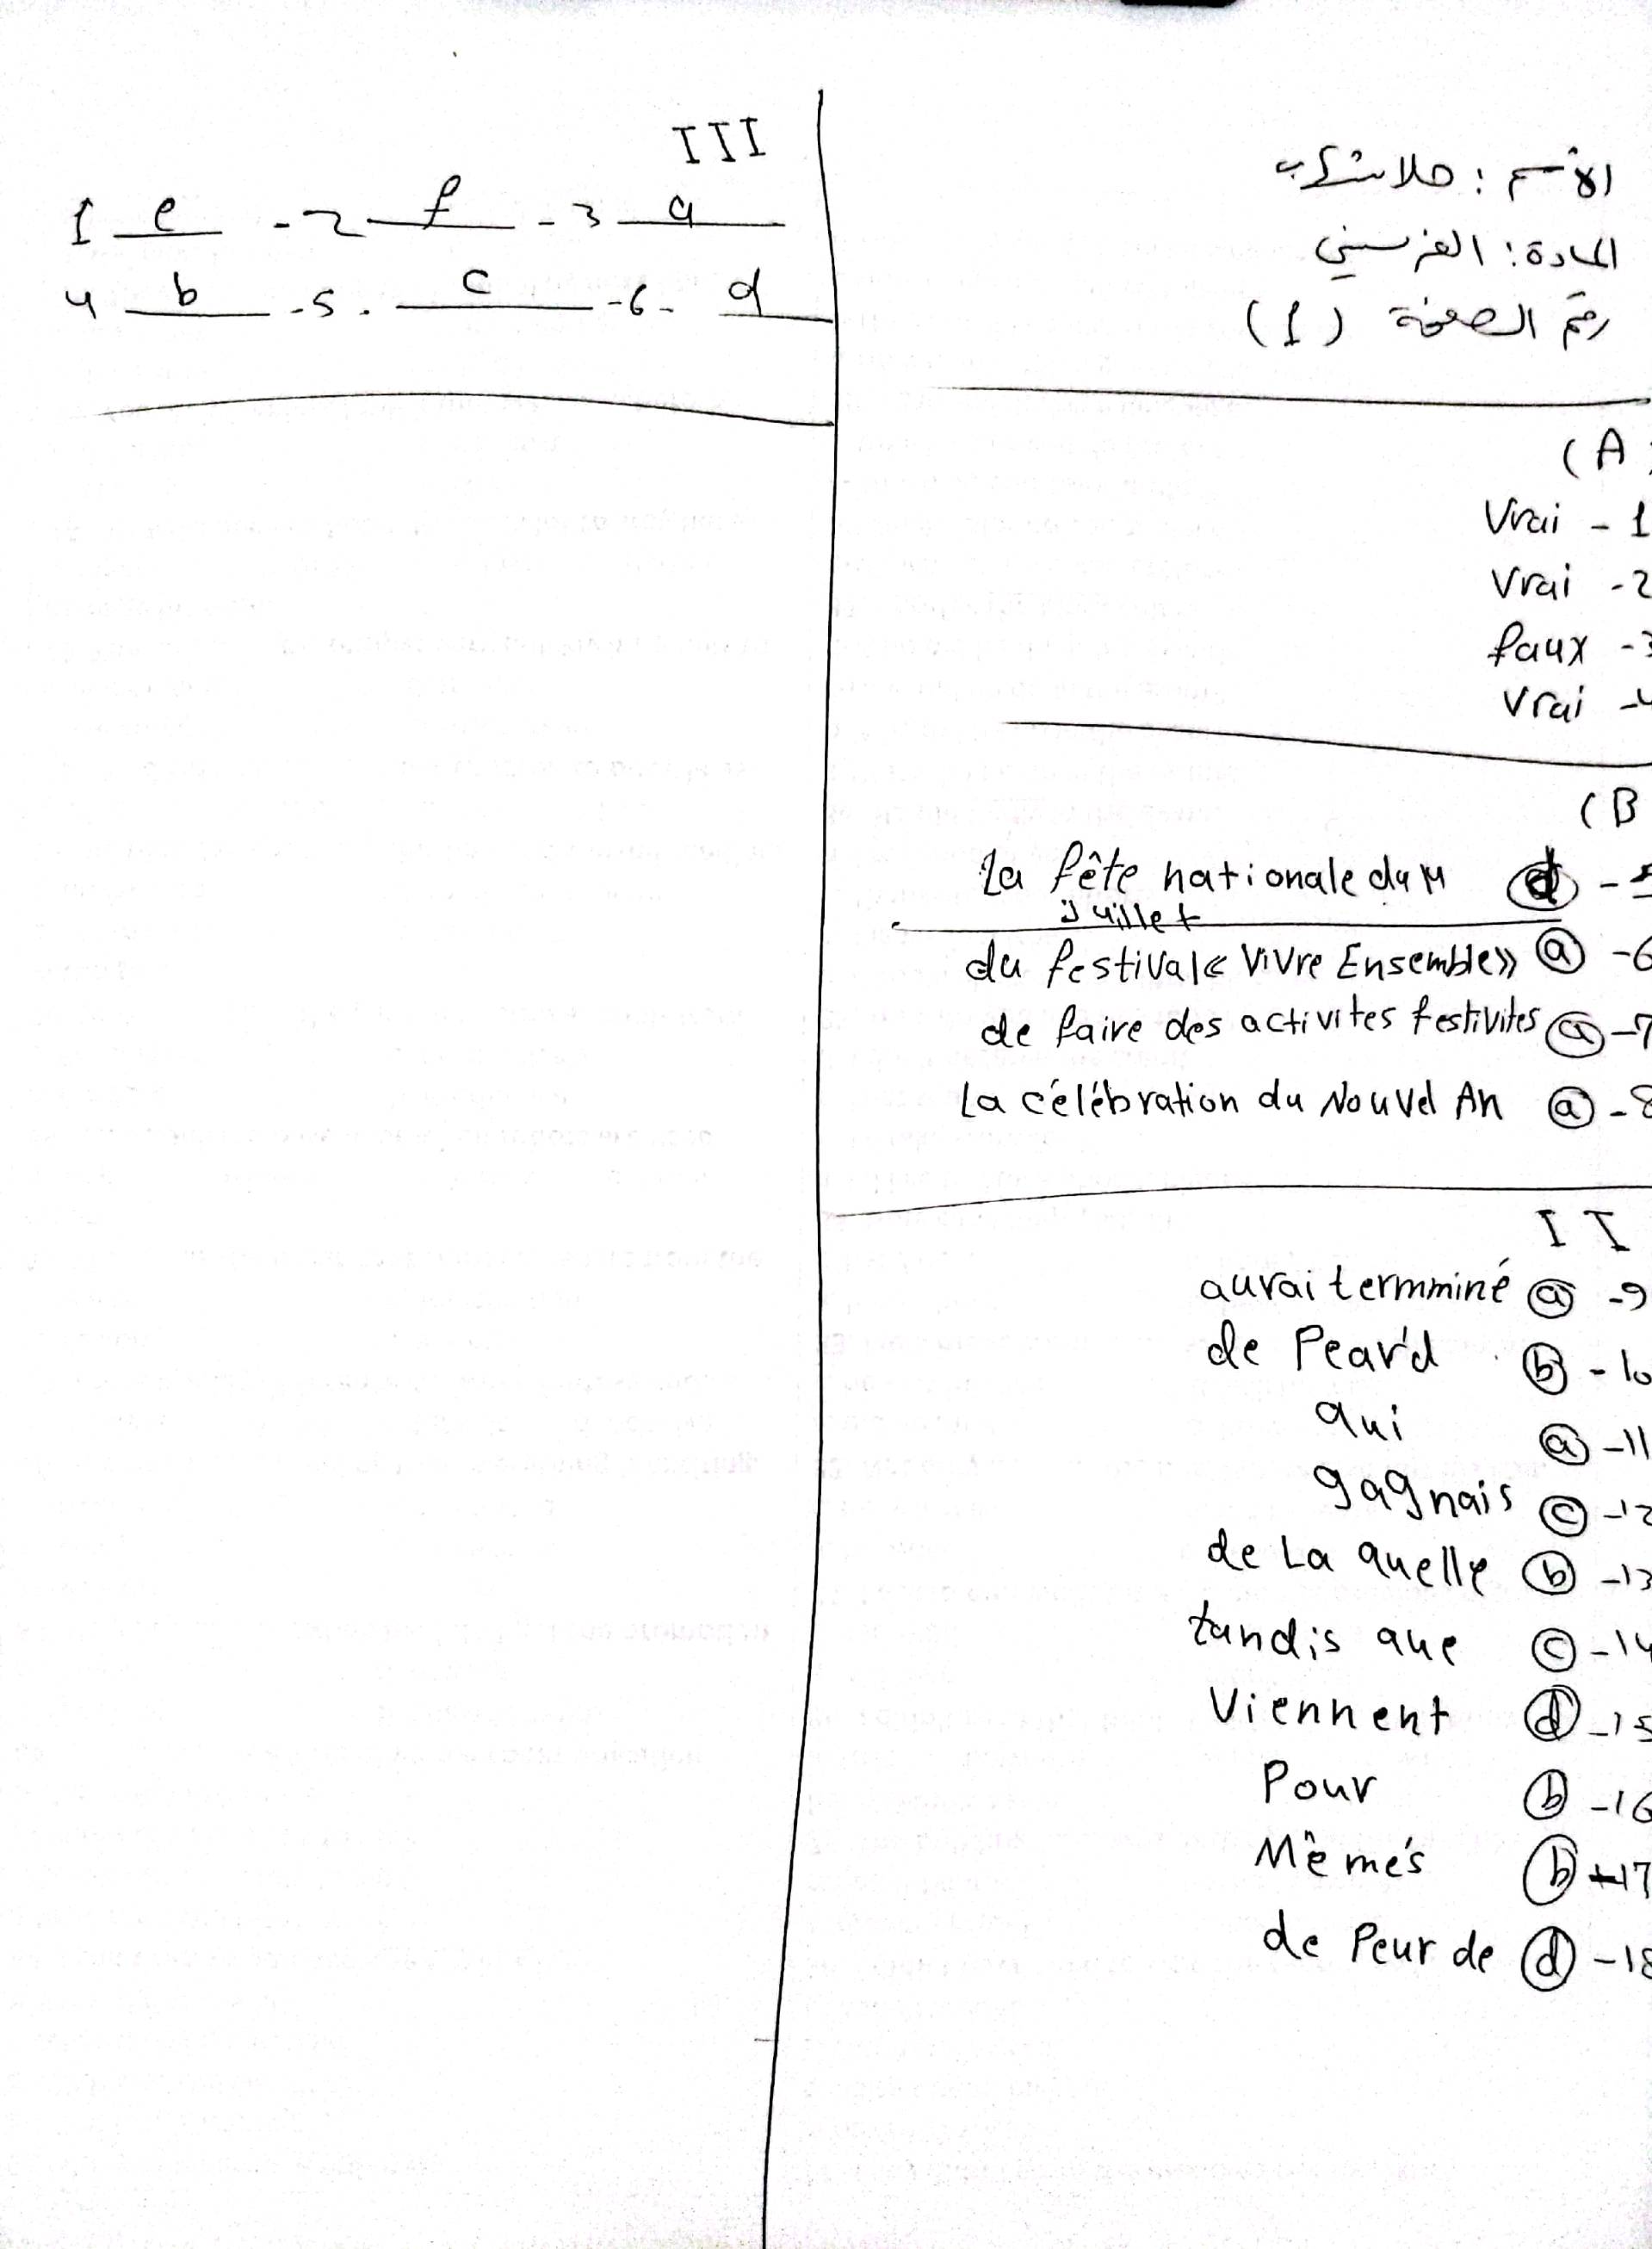 الأسم : حلا شكرب
المادة : الفرنسي
رقم الصفحة (1)
(A)
Vrai - 1
Vrai - 2
faux - 3
Vrai - 4
(B
La fête nationale du 14 d - 5
Juillet
du festival « Vivre Ensemble » a - 6
de faire des activites festivites a - 7
La célébration du Nouvel An a - 8
II
aurai termminé a - 9
de Pear'd b - 10
qui a - 11
gagnais c - 12
de La quelle b - 13
tandis que c - 14
Viennent d - 15
Pour b - 16
Mêmes b - 17
de Peur de d - 18
III
1 e - 2 f - 3 a
4 b - 5 . c - 6 - d